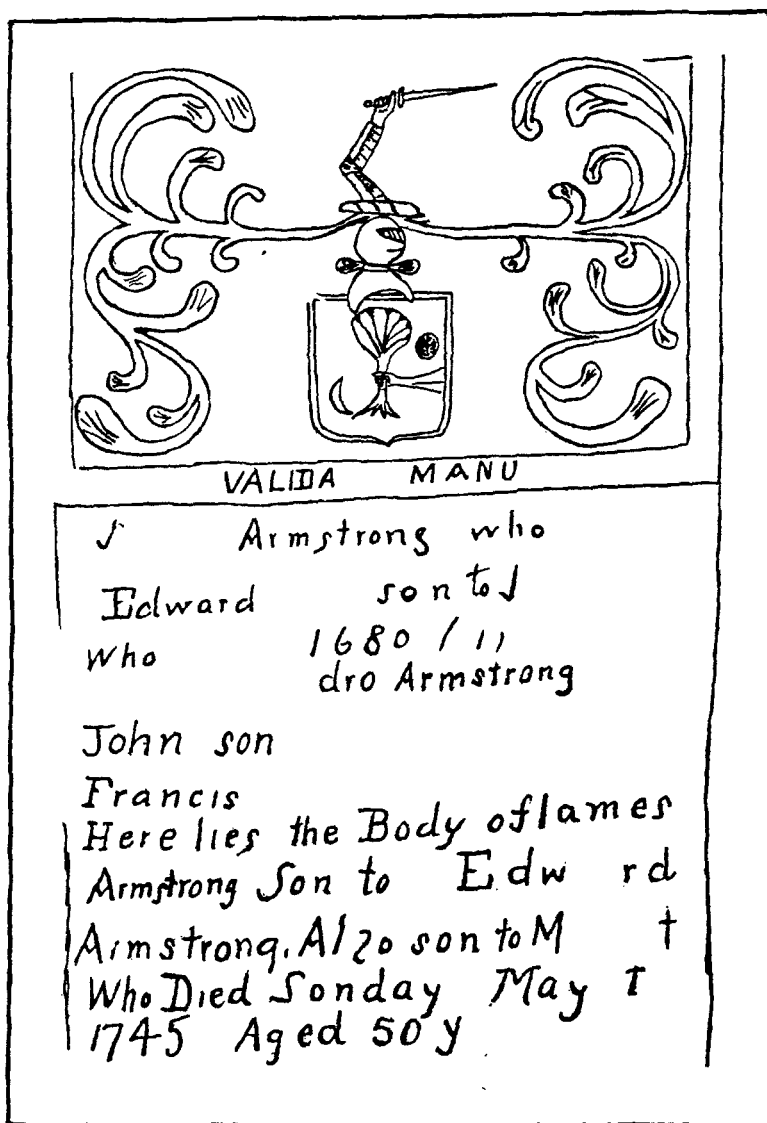 VALIDA MANU
J Armstrong who
Edward son to J
Who 1680 / 11
dro Armstrong
John son
Francis
Here lies the Body of Iames
Armstrong Son to Edw rd
Armstrong. Alzo son to M t
Who Died Sonday May I
1745 Aged 50 y